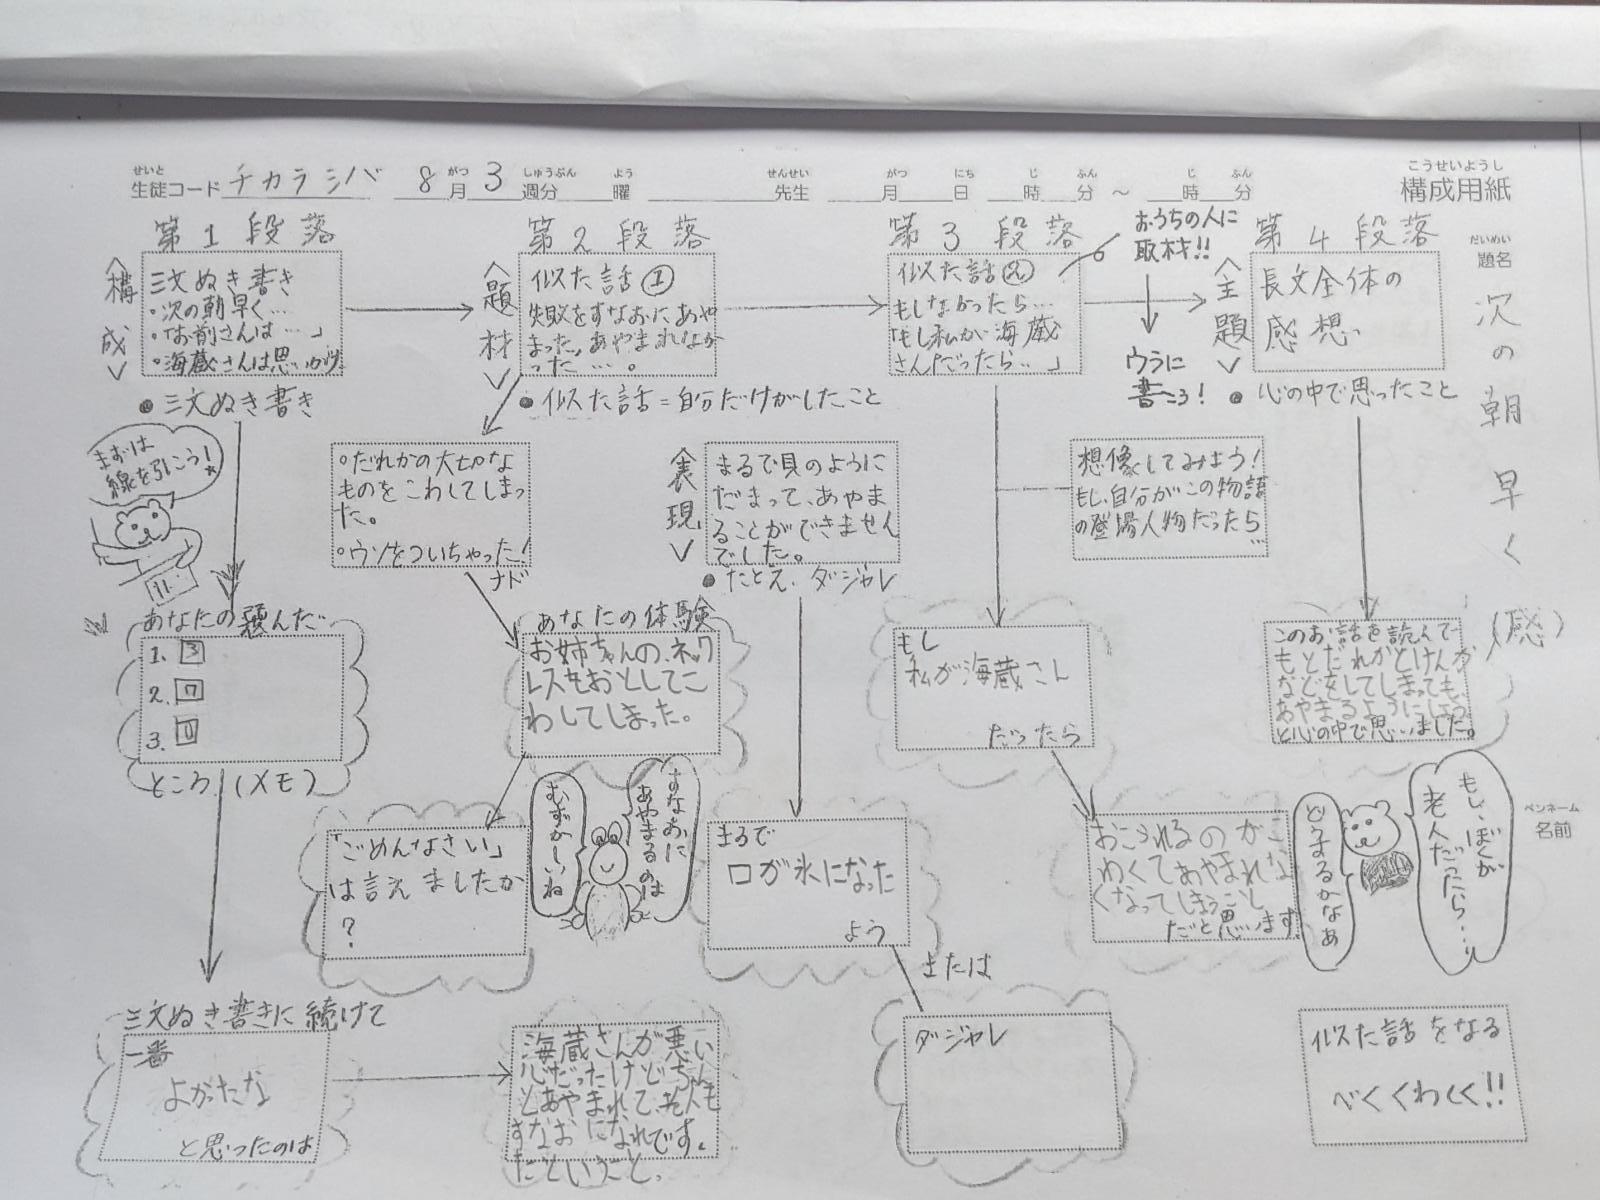 せいと
生徒コード チカラシバ 8月3週分 曜 先生 月 日 時 分 ～ 時 分
がつ しゅうぶん よう せんせい がつ にち じ ふん じ ふん
こうせいようし
構成用紙
だいめい
題名
次の朝早く(感)
ペンネーム
名前
第1段落
<構成>
三文ぬき書き
・次の朝早く…
・「お前さんは…」
・海蔵さんは思いがけ
●三文ぬき書き
まずは
線を引こう!
あなたの選んだ
1. 3
2. 7
3. 10
ところ(メモ)
三文ぬき書きに続けて
一番
よかったな
と思ったのは
海蔵さんが悪い
心だったけどちゃん
とあやまれて、老人も
すなおになれです。
たということ。
第2段落
<題材>
似た話①
失敗をすなおにあや
まった。あやまれなか
った…。
●似た話=自分だけがしたこと
○だれかの大切な
ものをこわしてしまっ
た。
○ウソをついちゃった!
ナド
あなたの体験
お姉ちゃんの、ネック
レスをおとしてこ
わしてしまった。
「ごめんなさい」
は言えましたか
?
すなおに
あやまるのは
むずかしいね
<表現>
まるで貝のように
だまって、あやま
ることができません
でした。
●たとえ.ダジャレ
まるで
口が氷になった
よう
または
ダジャレ
第3段落
似た話②
もしなかったら…
「もし私が海蔵
さんだったら…」
おうちの人に
取材!!
ウラに
書こう!
想像してみよう!
もし、自分がこの物語
の登場人物だったら
…
もし
私が海蔵さん
だったら
おこられるのがこ
わくてあやまれな
くなってしまうこと
だと思います。
第4段落
<主題>
長文全体の
感想。
●心の中で思ったこと
このお話を読んで
もとだれかとけんか
などをしてしまっても、
あやまるようにしよう
と心の中で思いました。
もし、ぼくが
老人だったら…
どうするかなぁ
似た話をなる
べくくわしく!!